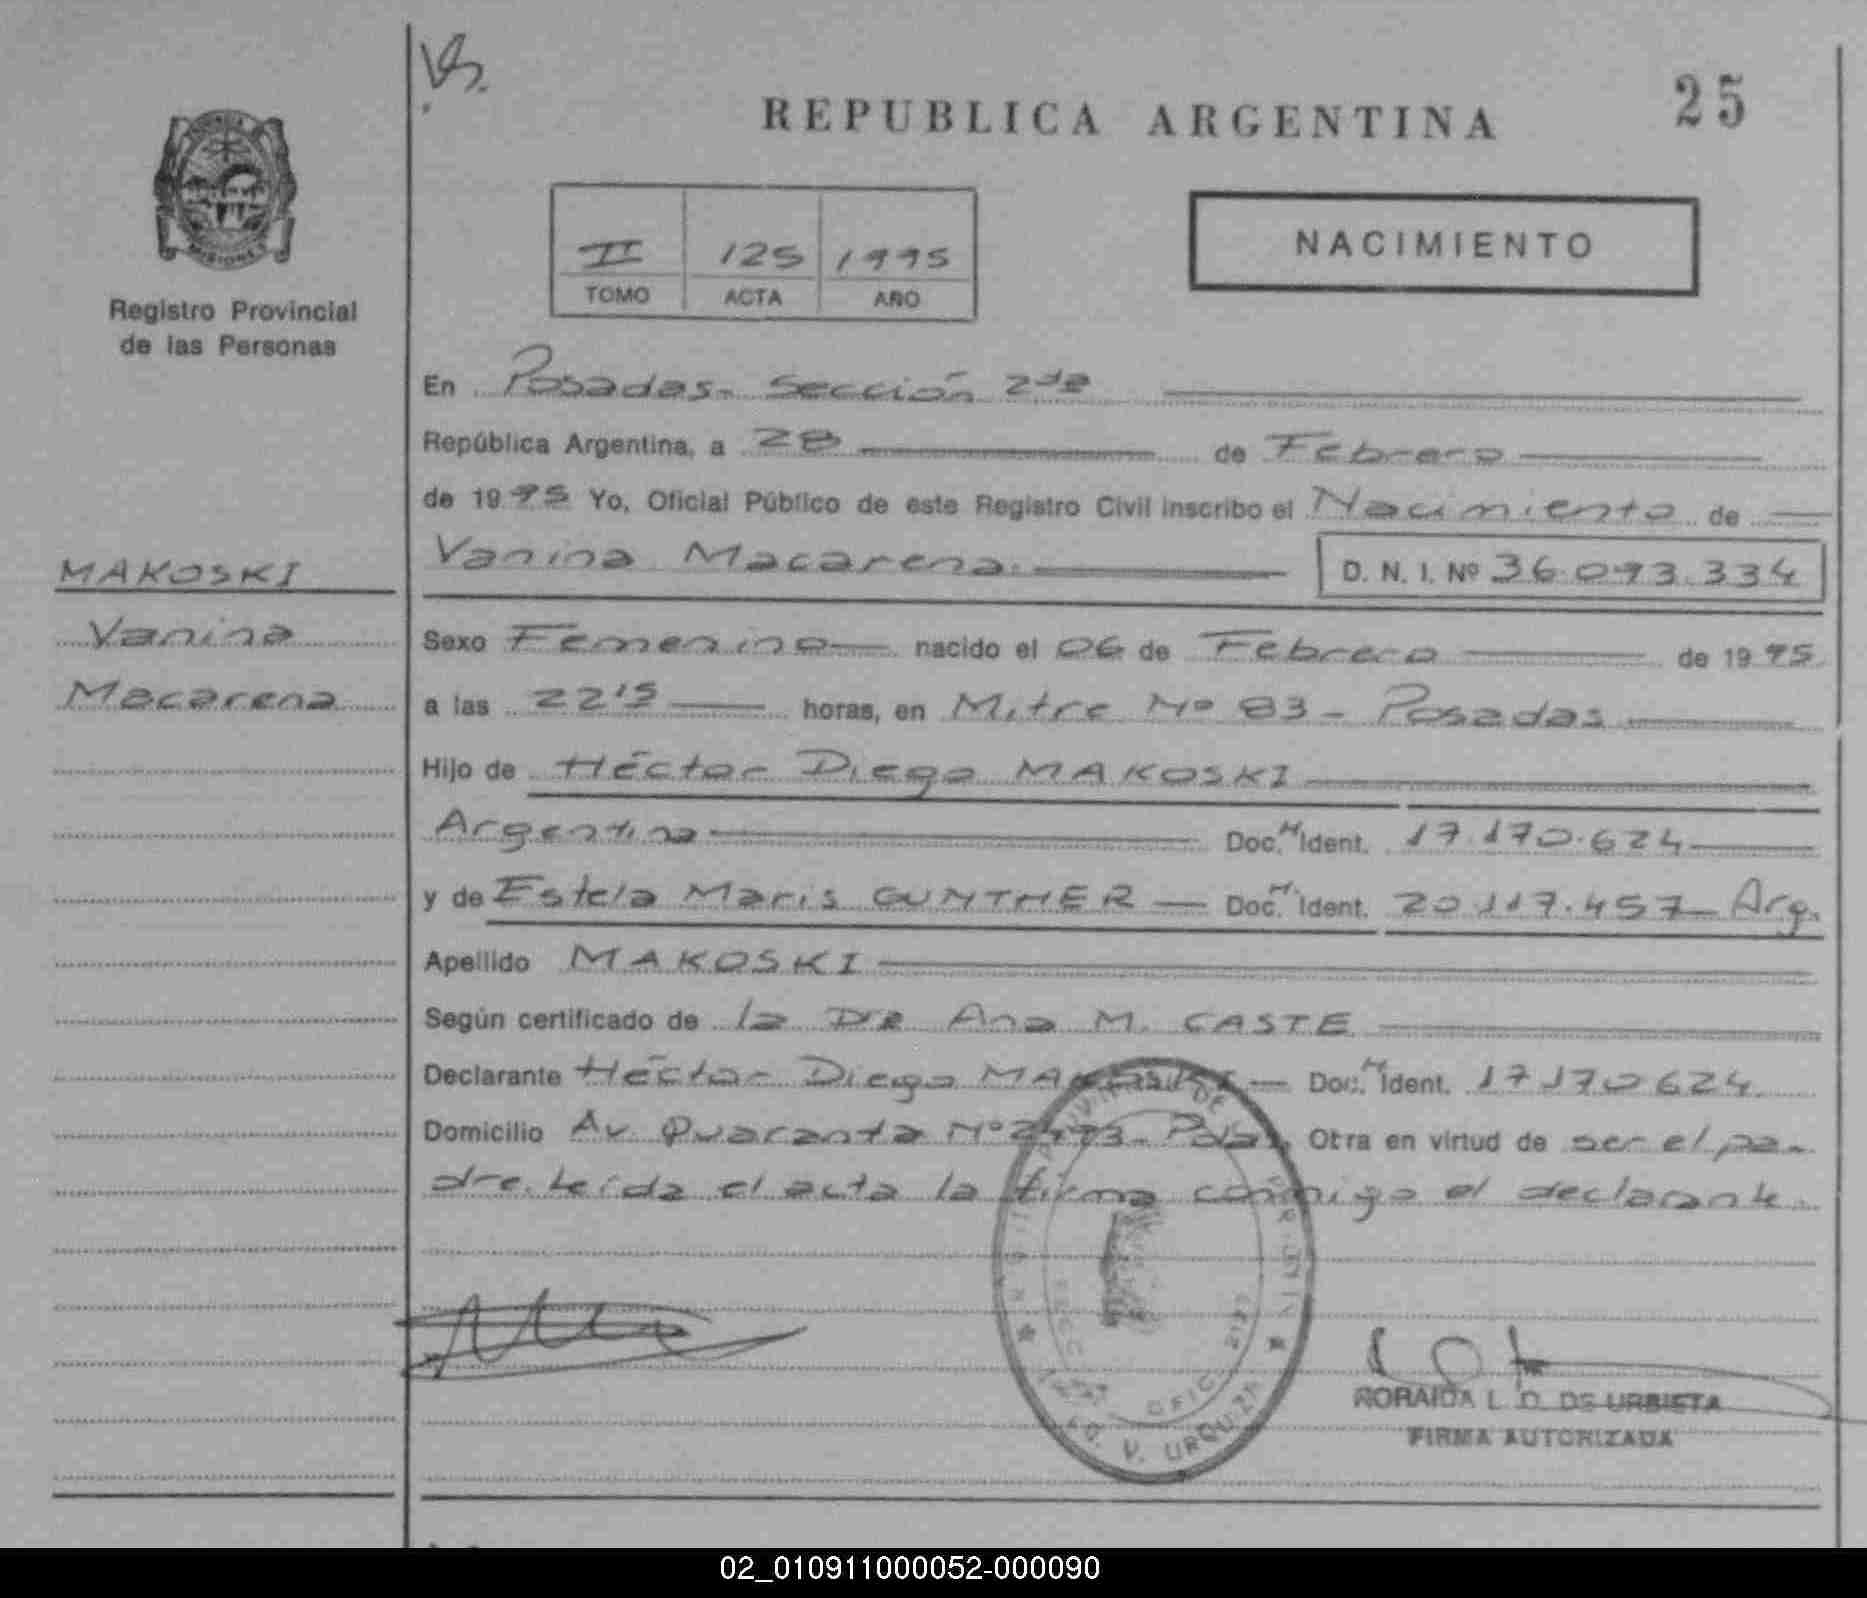 Vs.
REPUBLICA ARGENTINA
25
II 125 1995
TOMO ACTA AÑO
NACIMIENTO
Registro Provincial
de las Personas
En Posadas- Sección 2da
República Argentina, a 28 de Febrero
de 1995 Yo, Oficial Público de este Registro Civil inscribo el Nacimiento de
Vanina Macarena. D. N. I. Nº 36.093.334
MAKOSKI
Vanina
Macarena
Sexo Femenino nacido el 06 de Febrero de 1995
a las 22 15 horas, en Mitre Nº 83 - Posadas
Hijo de Héctor Diego MAKOSKI
Argentino Doc. N. Ident. 17.170.624
y de Estela Maris GUNTHER Doc. N. Ident. 20.117.457 Arg.
Apellido MAKOSKI
Según certificado de la Dra Ana M. CASTE
Declarante Héctor Diego MAKOSKI Doc. N. Ident. 17170624
Domicilio Av. Quaranta Nº 2493- Pdas. Otra en virtud de ser el pa-
dre. Leída el acta la firma conmigo el declarante.
OFIC.
V. URQUIZA
RORAIDA L. D. DE URBIETA
FIRMA AUTORIZADA
02_010911000052-000090